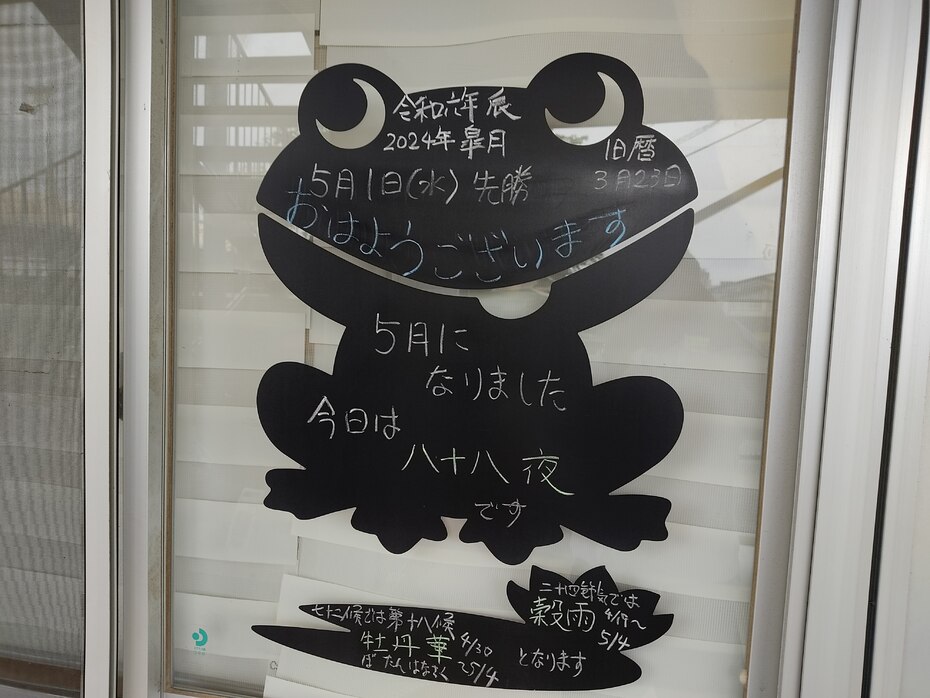 令和六年 辰
2024年 皐月
旧暦
3月23日
5月1日(水) 先勝
おはようございます
5月に
なりました
今日は
八十八夜
です
二十四節気では
穀雨 4/19〜
5/4
七十二候では第十八候
牡丹華 4/30
ぼたんはなさく 5/4
となります